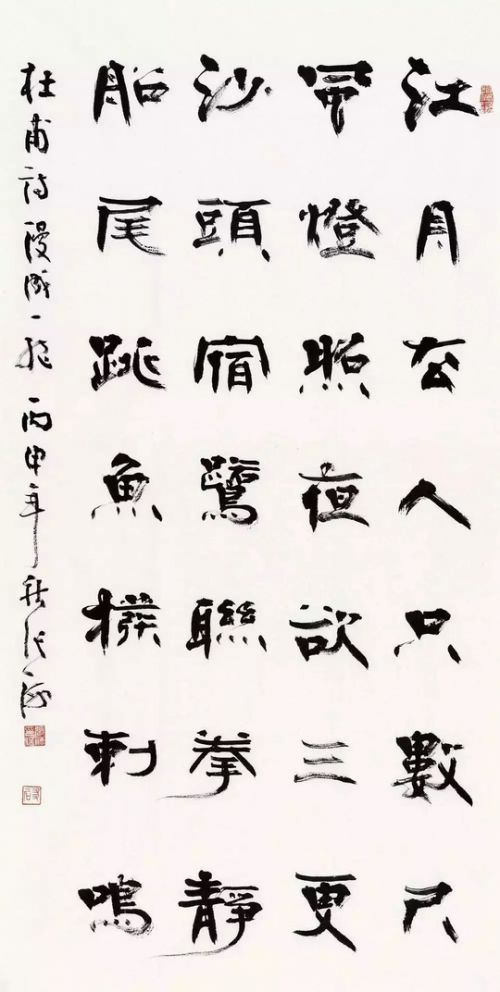 江月去人只數尺
風燈照夜欲三更
沙頭宿鷺聯拳靜
船尾跳魚撥剌鳴
杜甫詩漫成一絕丙申年秋